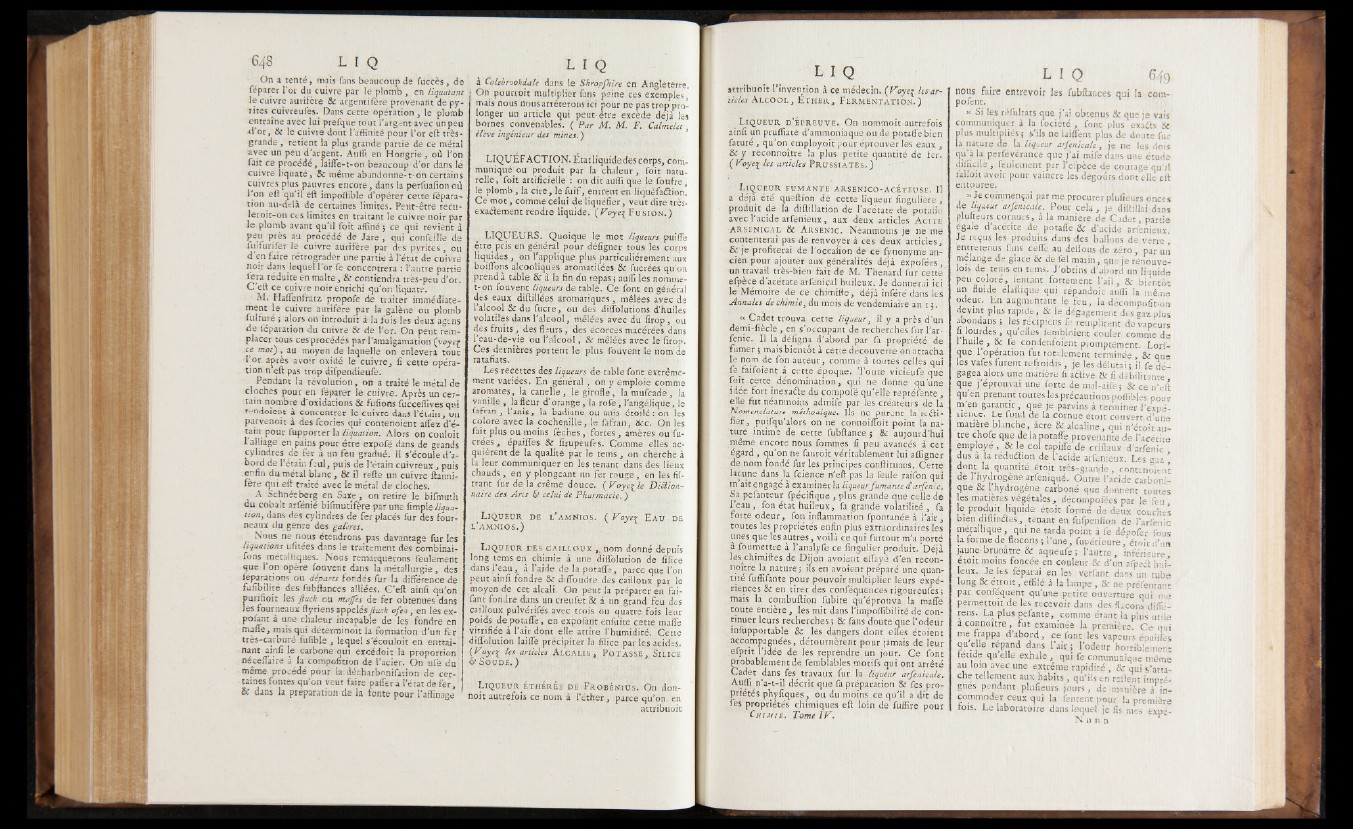 648 L I Q
L I Q
On a tenté, mais sans beaucoup de succès, de
séparer l'or du cuivre par le plomb, en liquatant
le cuivre aurifère & argentifère provenant de py-
rites cuivreuses. Dans cette opération, le plomb
entraîne avec lui presque tout l'argent avec un peu
d'or, & le cuivre dont l'affinité pour l'or est très-
grande, retient la plus grande partie de ce métal
avec un peu d'argent. Aussi en Hongrie, où l'on
fait ce procédé, laisse-t-on beaucoup d'or dans le
cuivre liquaté, & même abandonne-t-on certains
cuivres plus pauvres encore, dans la persuasion où
l'on est qu'il est impossible d'opérer cette sépara-
tion au-delà de certaines limites. Peut-être recu-
leroit-on ces limites en traitant le cuivre noir par
le plomb avant qu'il soit affiné; ce qui revient à
peu près au procédé de Jare, qui conseille de
sulfurifer le cuivre aurifère par des pyrites, ou
d'en faire rétrograder une partie à l'état de cuivre
noir dans lequel l'or se concentrera : l'autre partie
sera réduite en matte, & contiendra très-peu d'or.
C'est ce cuivre noir enrichi qu'on liquate.
M. Hassenfratz propose de traiter immédiate-
ment le cuivre aurifère par la galène ou plomb
sulfuré; alors on introduit à la fois les deux agens
de séparation du cuivre & de l'or. On peut rem-
placer tous ces procédés par l'amalgamation (voyez
ce mot), au moyen de laquelle on enlevera tout
l'or après avoir oxidé le cuivre, si cette opéra-
tion n'est pas trop dispendieuse.
Pendant la révolution, on a traité le métal de
cloches pour en séparer le cuivre. Après un cer-
tain nombre d'oxidations & fusions successives qui
tendoient à concentrer le cuivre dans l'étain, on
parvenoit à des scories qui contenoient assez d'é-
tain pour supporter la liquation. Alors on couloit
l'alliage en pains pour être exposé dans de grands
cylindres de fer à un feu gradué. Il s'écoule d'a-
bord de l'étain seul, puis de l'étain cuivreux, puis
enfin du métal blanc, & il reste un cuivre stanni-
fère qui est traité avec le métal de cloches.
A Schnéeberg en Saxe, on retire le bismuth
du cobalt arsénié bismutifère par une simple liqua-
tion, dans des cylindres de fer placés sur des four-
neaux du genre des galères.
Nous ne nous étendrons pas davantage sur les
liquations usitées dans le traitement des combinai-
sons métalliques. Nous remarquerons seulement
que l'on opère souvent dans la métallurgie, des
séparations ou départs fondés sur la différence de
fusibilité des substances alliées. C'est ainsi qu'on
purifioit les stuck ou masses de fer obtenues dans
les fourneaux styriens appelés stuck ofen, en les ex-
posant à une chaleur incapable de les fondre en
masse, mais qui déterminoit la formation d'un fer
très-carburé fusible, lequel s'écouloit en entraî-
nant ainsi le carbone qui excédoit la proportion
nécessaire à la composition de l'acier. On use du
même procédé pour la décharbonisation de cer-
taines fontes qu'on veut faire passer à l'état de fer,
& dans la préparation de la fonte pour l'affinage
à Colebrookdale dans le Shropshire en Angleterre.
On pourroit multiplier sans peine ces exemples,
mais nous nous arrêterons ici pour ne pas trop pro-
longer un article qui peut-être excède déjà les
bornes convenables. (Par M. M. F. Calmelet,
élève ingénieur des mines.)
LIQUÉFACTION. État liquide des corps, com-
muniqué ou produit par la chaleur, soit natu-
relle, soit artificielle : on dit aussi que le soufre,
le plomb, la cire, le suif, entrent en liquéfaction.
Ce mot, comme celui de liquéfier, veut dire très-
exactement rendre liquide. (Voyez FUSION.)
LIQUEURS. Quoique le mot liqueurs puisse
être pris en général pour désigner tous les corps
liquides, on l'applique plus particulièrement aux
boissons alcooliques aromatisées & sucrées qu'on
prend à table & à la fin du repas; aussi les nomme-
t-on souvent liqueurs de table. Ce sont en général
des eaux distillées aromatiques, mêlées avec de
l'alcool & du sucre, ou des dissolutions d'huiles
volatiles dans l'alcool, mêlées avec du sirop, ou
des fruits, des fleurs, des écorces macérées dans
l'eau-de-vie ou l'alcool, & mêlées avec le sirop.
Ces dernières portent le plus souvent le nom de
ratafiats.
Les recettes des liqueurs de table sont extrême-
ment variées. En général, on y emploie comme
aromates, la canelle, le girofle, la muscade, la
vanille, la fleur d'orange, la rose, l'angélique, le
safran, l'anis, la badiane ou anis étoilé : on les
colore avec la cochenille, le safran, &c. On les
fait plus ou moins sèches, fortes, amères ou su-
crées, épaisses & sirupeuses. Comme elles ac-
quièrent de la qualité par le tems, on cherche à
la leur communiquer en les tenant dans des lieux
chauds, en y plongeant un fer rouge, en les fil-
trant sur de la crême douce. (Voyez le Diction-
naire des Arts & celui de Pharmacie.)
LIQUEUR DE L'AMNIOS. (Voyez EAU DE
L'AMNIOS.)
LIQUEUR DES CAILLOUX, nom donné depuis
long tems en chimie à une dissolution de silice
dans l'eau, à l'aide de la potasse, parce que l'on
peut ainsi fondre & dissoudre des cailloux par le
moyen de cet alcali. On peut la préparer en fai-
sant fondre dans un creuset & à un grand feu des
cailloux pulvérisés avec trois ou quatre fois leur
poids de potasse, en exposant ensuite cette masse
vitrifiée à l'air dont elle attire l'humidité. Cette
dissolution laisse précipiter la silice par les acides.
(Voyez les articles ALCALIS, POTASSE, SILICE
& SOUDE.)
LIQUEUR ÉTHÉRÉE DE FROBÉNIUS. On don-
noit autrefois ce nom à l'éther, parce qu'on en
attribuoit
L I Q
L I Q 649
attribuoit l'invention à ce médecin. (Voyez les ar-
ticles ALCOOL, ÉTHER, FERMENTATION.)
LIQUEUR D'ÉPREUVE. On nommoit autrefois
ainsi un prussiate d'ammoniaque ou de potasse bien
saturé, qu'on employoit pour éprouver les eaux,
& y reconnoître la plus petite quantité de fer.
(Voyez les articles PRUSSIATES.)
LIQUEUR FUMANTE ARSENICO-ACÉTEUSE. Il
a déjà été question de cette liqueur singulière,
produit de la distillation de l'acétate de potasse
avec l'acide arsenieux, aux deux articles ACIDE
ARSENICAL & ARSENIC. Néanmoins je ne me
contenterai pas de renvoyer à ces deux articles,
& je profiterai de l'occasion de ce synonyme an-
cien pour ajouter aux généralités déjà exposées,
un travail très-bien fait de M. Thenard sur cette
espèce d'acétate arsenical huileux. Je donnerai ici
le Mémoire de ce chimiste, déjà inséré dans les
Annales de chimie, du mois de vendemiaire an 13.
« Cadet trouva cette liqueur, il y a près d'un
demi-siècle, en s'occupant de recherches sur l'ar-
senic. Il la désigna d'abord par sa propriété de
fumer; mais bientôt à cette découverte on attacha
le nom de son auteur, comme à toutes celles qui
se faisoient à cette époque. Toute vicieuse que
soit cette dénomination, qui ne donne qu'une
idée fort inexacte du composé qu'elle représente,
elle fut néanmoins admise par les créateurs de la
Nomenclature méthodique. Ils ne purent la recti-
fier, puisqu'alors on ne connoissoit point la na-
ture intime de cette substance; & aujourd'hui
même encore nous sommes si peu avancés à cet
égard, qu'on ne sauroit véritablement lui assigner
de nom fondé sur les principes constituans. Cette
lacune dans la science n'est pas la seule raison qui
m'ait engagé à examiner la liqueur fumante d'arsenic.
Sa pesanteur spécifique, plus grande que celle de
l'eau, son état huileux, sa grande volatilité, sa
forte odeur, son inflammation spontanée à l'air,
toutes les propriétés enfin plus extraordinaires les
unes que les autres, voilà ce qui surtout m'a porté
à soumettre à l'analyse ce singulier produit. Déjà
les chimistes de Dijon avoient essayé d'en recon-
noître la nature; ils en avoient préparé une quan-
tité suffisante pour pouvoir multiplier leurs expé-
riences & en tirer des conséquences rigoureuses;
mais la combustion subite qu'éprouva la masse
toute entière, les mit dans l'impossibilité de con-
tinuer leurs recherches; & sans doute que l'odeur
insupportable & les dangers dont elles étoient
accompagnées, détournèrent pour jamais de leur
esprit l'idée de les reprendre un jour. Ce sont
probablement de semblables motifs qui ont arrêté
Cadet dans ses travaux sur la liqueur arsenicale.
Aussi n'a-t-il décrit que sa préparation & ses pro-
priétés physiques, ou du moins ce qu'il a dit de
ses propriétés chimiques est loin de suffire pour
CHIMIE. Tome IV.
nous faire entrevoir les substances qui la com-
posent.
» Si les résultats que j'ai obtenus & que je vais
communiquer à la société, sont plus exacts &
plus multipliés; s'ils ne laissent plus de doute sur
la nature de la liqueur arsenicale, je ne les dois
qu'à la persévérance que j'ai mise dans une étude
difficile, seulement par l'espèce de courage qu'il
falloit avoir pour vaincre les dégoûts dont elle est
entourée.
» Je commençai par me procurer plusieurs onces
de liqueur arsenicale. Pour cela, je distillai dans
plusieurs cornues, à la manière de Cadet, partie
égale d'acétite de potasse & d'acide arsenieux.
Je reçus les produits dans des ballons de verre,
entretenus sans cesse au dessous de zéro, par un
mélange de glace & de sel marin, que je renouve-
lois de tems en tems. J'obtins d'abord un liquide
peu coloré, sentant fortement l'ail, & bientôt
un fluide élastique qui répandoit aussi la même
odeur. En augmentant le feu, la décomposition
devint plus rapide, & le dégagement des gaz plus
abondans; les récipiens se remplirent de vapeurs
si lourdes, qu'elles sembloient couler comme de
l'huile, & se condensoient promptement. Lors-
que l'opération fut totalement terminée, & que
les vases furent refroidis, je les délutai; il se dé-
gagea alors une matière si active & si débilitante,
que j'éprouvai une sorte de mal-aise; & ce n'est
qu'en prenant toutes les précautions possibles pour
m'en garantir, que je parvins à terminer l'expé-
rience. Le fond de la cornue étoit couvert d'une
matière blanche, âcre & alcaline, qui n'étoit au-
tre chose que de la potasse provenante de l'acétite
employé, & le col tapissé de cristaux d'arsenic,
dus à la réduction de l'acide arsenieux. Les gaz,
dont la quantité étoit très-grande, contenoient
de l'hydrogène arseniqué. Outre l'acide carboni-
que & l'hydrogène carboné que donnent toutes
les matières végétales, décomposées par le feu,
le produit liquide étoit formé de deux couches
bien distinctes, tenant en suspension de l'arsenic
métallique, qui ne tarda point à se déposer sous
la forme de flocons; l'une, supérieure, étoit d'un
jaune-brunâtre & aqueuse; l'autre, inférieure,
étoit moins foncée en couleur & d'un aspect hui-
leux. Je les séparai en les versant dans un tube
long & étroit, effilé à la lampe, & ne présentant
par conséquent qu'une petite ouverture qui me
permettoit de les recevoir dans des flacons diffé-
rens. La plus pesante, comme étant la plus utile
à connoître, fut examinée la première. Ce qui
me frappa d'abord, ce sont les vapeurs épaisses
qu'elle répand dans l'air; l'odeur horriblement
fétide qu'elle exhale, qui se communique même
au loin avec une extrême rapidité, & qui s'atta-
che tellement aux habits, qu'ils en restent impré-
gnés pendant plusieurs jours, de manière à in-
commoder ceux qui la sentent pour la première
fois. Le laboratoire dans lequel je fis mes expé-
N n n n